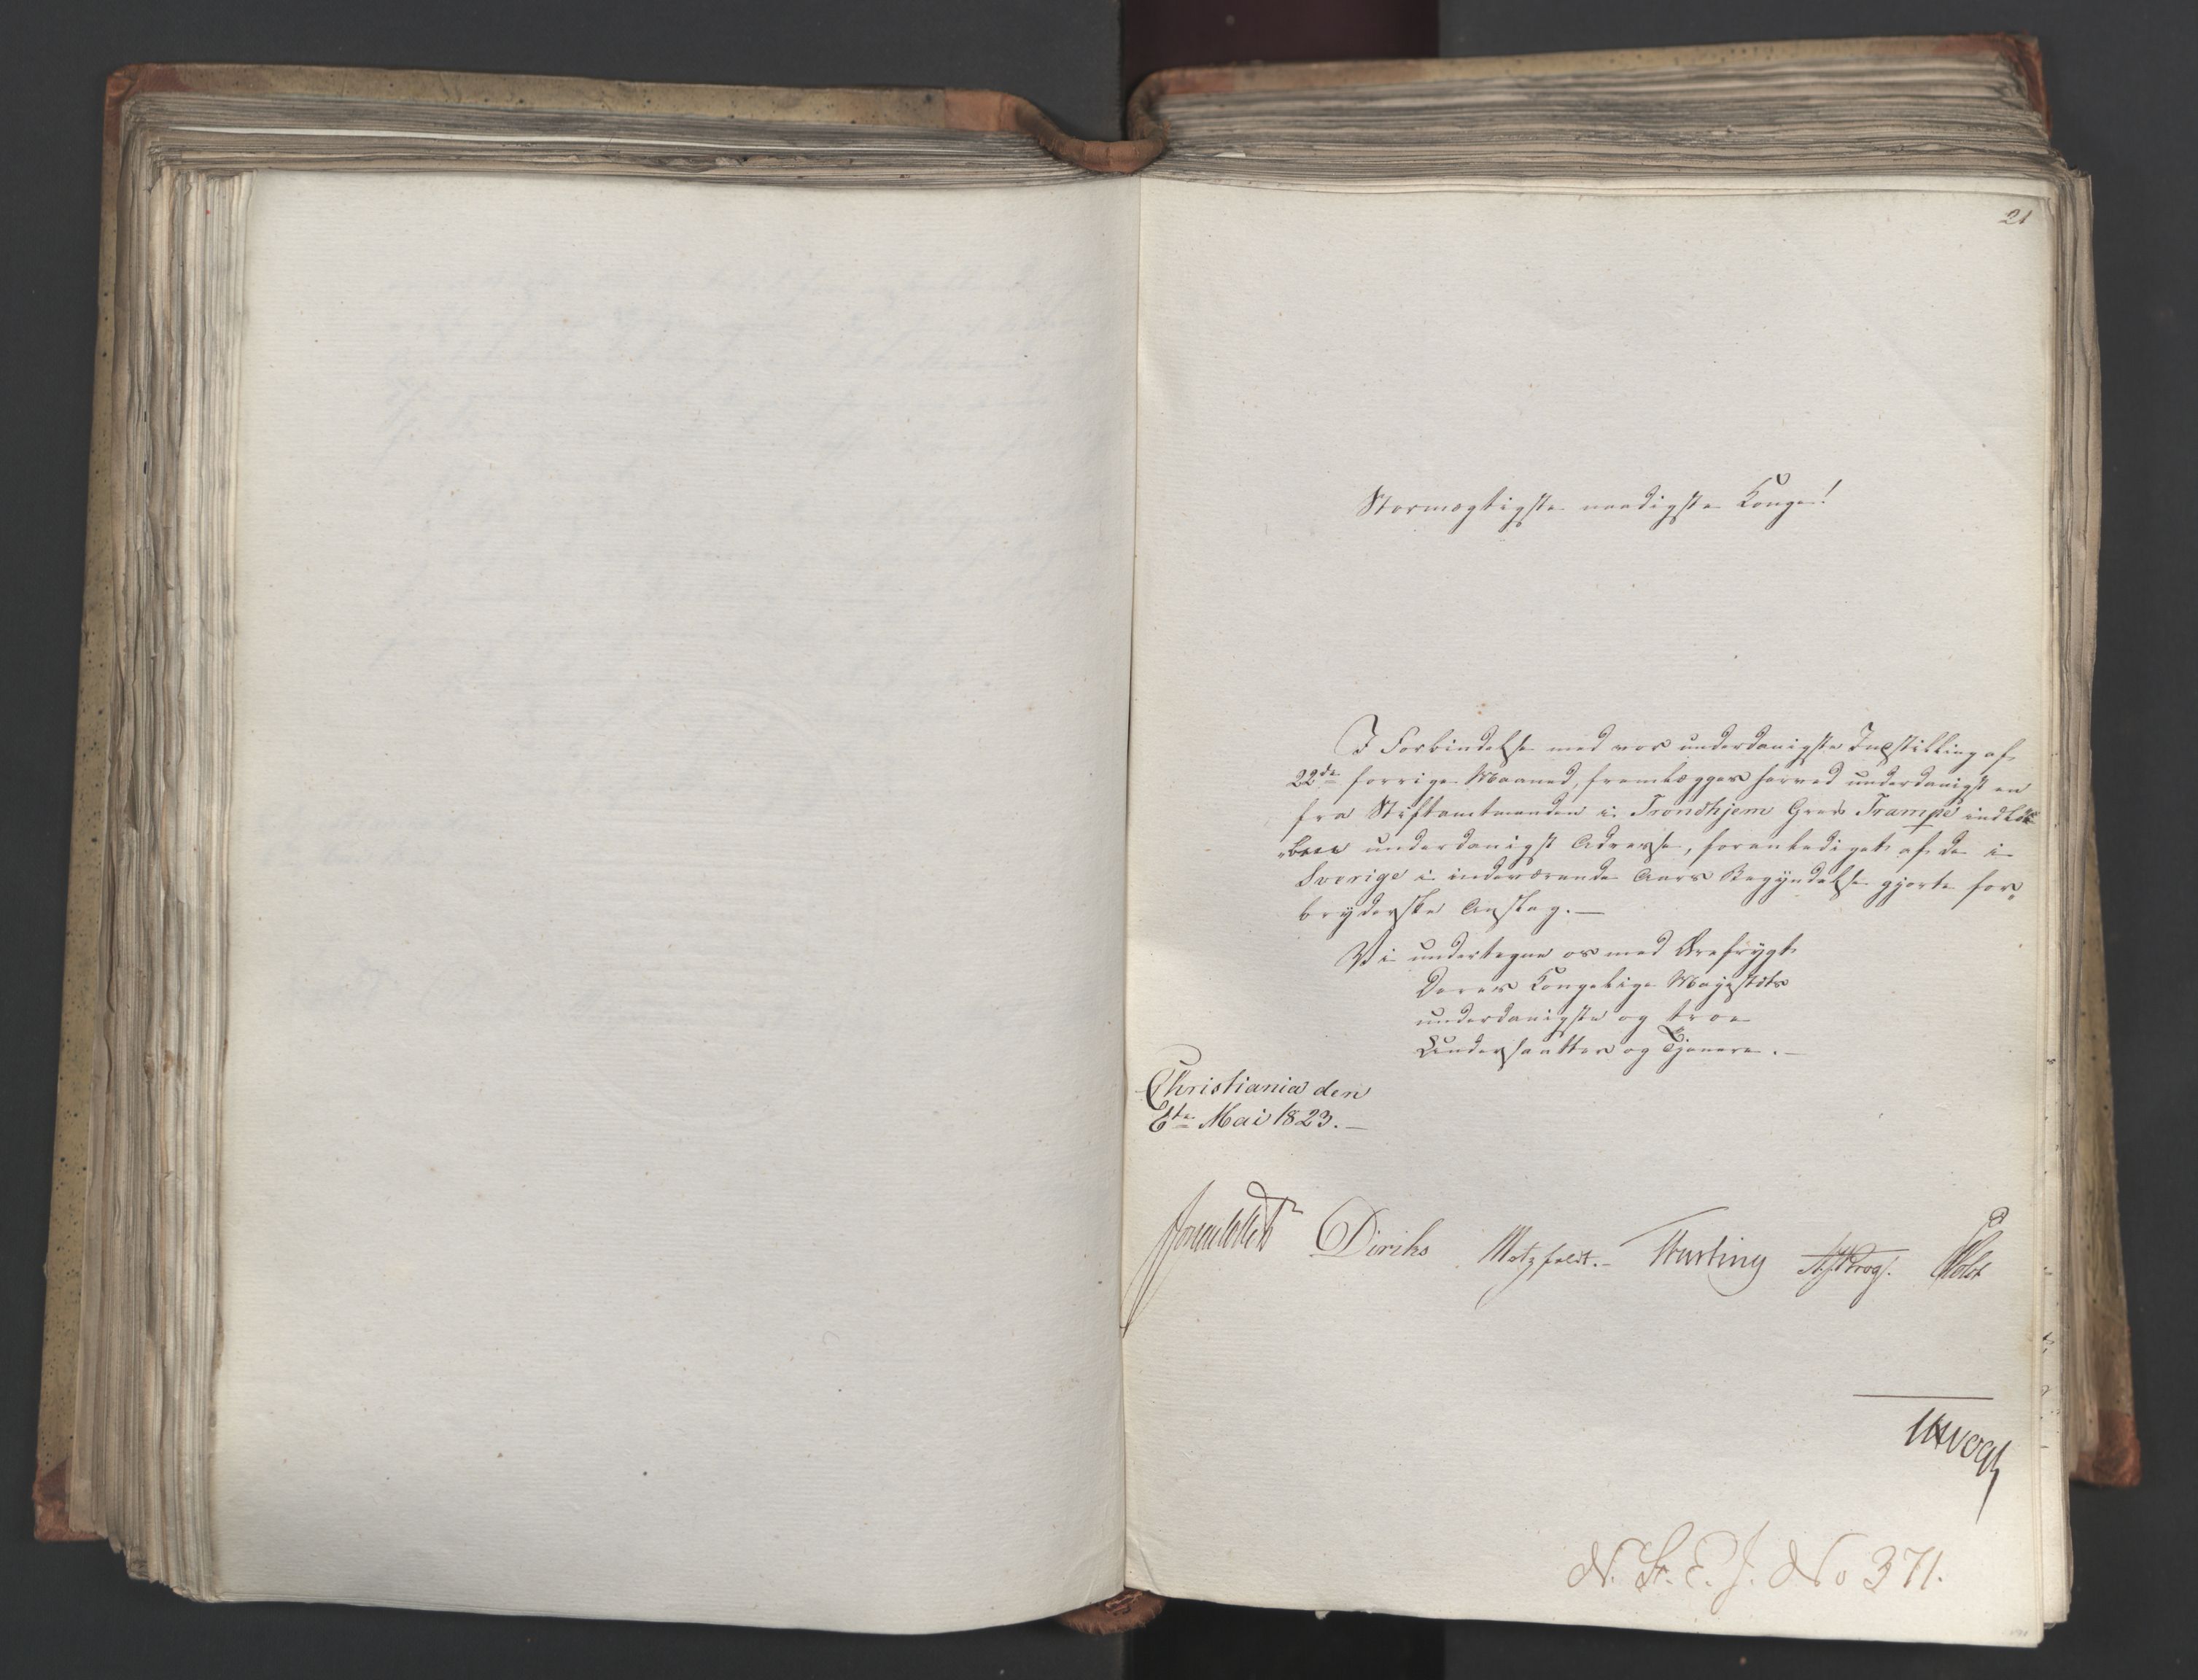 21
Stormægtigste naadigste Konge!
I Forbindelse med vor underdanigste Indstilling af
22de forrige Maaned, fremlægges herved underdanigst en
fra Stiftamtmanden i Trondhjem Grev Trampe indkom-
men underdanigst Adresse, foranlediget af de i
Sverige i indeværende Aars Begyndelse gjorte for-
bryderske Anslag. —
Vi undertegne os med Ærefrygt
Deres Kongelige Majestæts
underdanigste og troe
Undersaatter og Tjenere. —
Christiania den
6te Mai 1823. —
Sommerhielm Diriks Motzfeldt. Krog. Holst
Vogt
N. St. E. J. No 371.